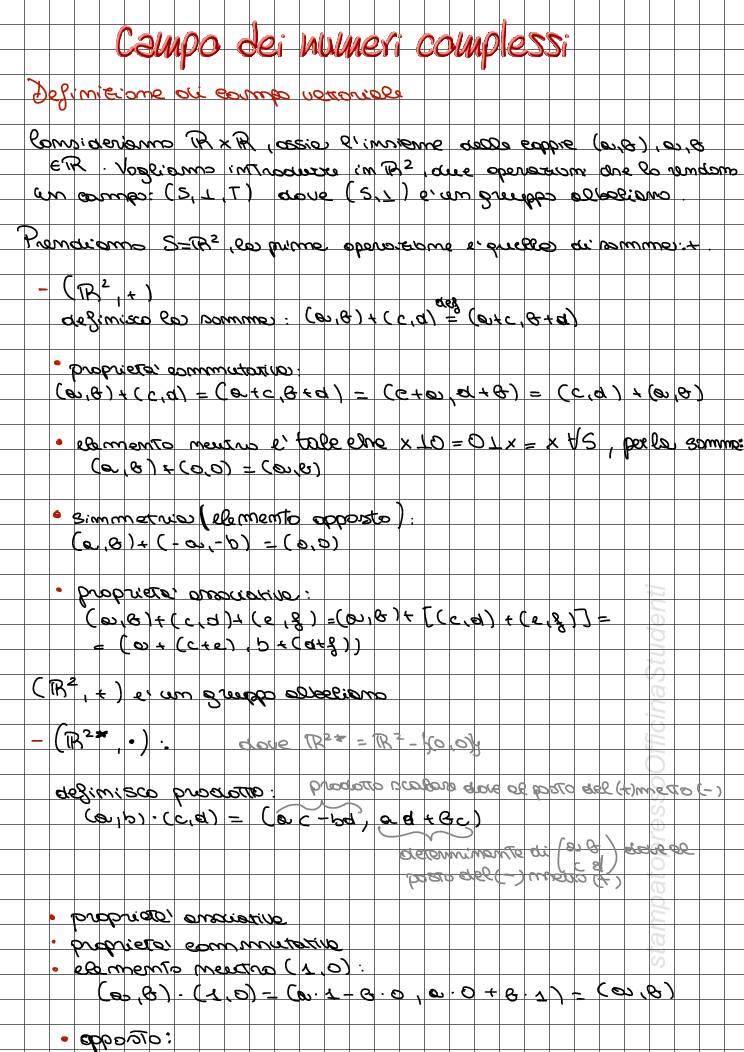 Campo dei numeri complessi
Definizione di campo vettoriale
Consideriamo ℝ×ℝ, ossia l'insieme delle coppie (a,b), a,b
∈ℝ. Vogliamo introdurre in ℝ², due operazioni che lo rendono
un campo: (S,⊥,T) dove (S,⊥) e' un gruppo abeliano.
Prendiamo S=ℝ², la prima operazione e' quella di somma: +.
- (ℝ², +)
definisco la somma: (a,b)+(c,d) =^def (a+c, b+d)
• proprieta' commutativa:
(a,b)+(c,d) = (a+c, b+d) = (c+a, d+b) = (c,d) + (a,b)
• elemento neutro e' tale che x⊥0 = 0⊥x = x ∀S, per la somma:
(a,b)+(0,0) = (a,b)
• simmetria (elemento opposto):
(a,b)+(-a,-b) = (0,0)
• proprieta' associativa:
(a,b)+(c,d)+(e,f) = (a,b)+[(c,d)+(e,f)] =
= (a+(c+e), b+(d+f))
(ℝ², +) e' un gruppo abeliano
- (ℝ²*, ·): dove ℝ²* = ℝ² - {(0,0)}
definisco prodotto: prodotto scalare dove al posto del (+) metto (-)
(a,b)·(c,d) = (ac-bd, ad+bc)
determinante di (a,b c d) dove al
posto del (-) metto (+)
• proprieta' associativa
• proprieta' commutativa
• elemento neutro (1,0):
(a,b)·(1,0) = (a·1-b·0, a·0+b·1) = (a,b)
• opposto:
stampatopressoOfficinaStudenti